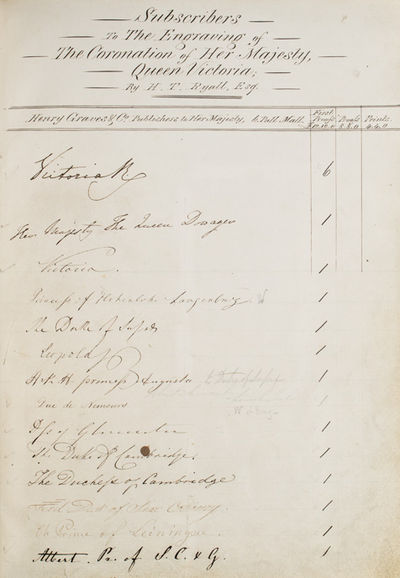 Subscribers
To The Engraving of
The Coronation of Her Majesty,
Queen Victoria;
By H. T. Ryall, Esq.
Henry Graves & Co. Publishers to Her Majesty, 6 Pall Mall. First Proofs Proofs Prints
8.8.0 4.4.0
Victoria R 6
Her Majesty The Queen Dowager 1
Victoria. 1
Princess of Hohenlohe Langenburg 1
The Duke of Sussex 1
Leopold 1
H.R.H. princess Augusta 1
Duc de Nemours 1
Dss of Gloucester 1
The Duke of Cambridge. 1
The Duchess of Cambridge 1
1
Prince of Leiningen. 1
Albert. Pr. of S. C. & G. 1